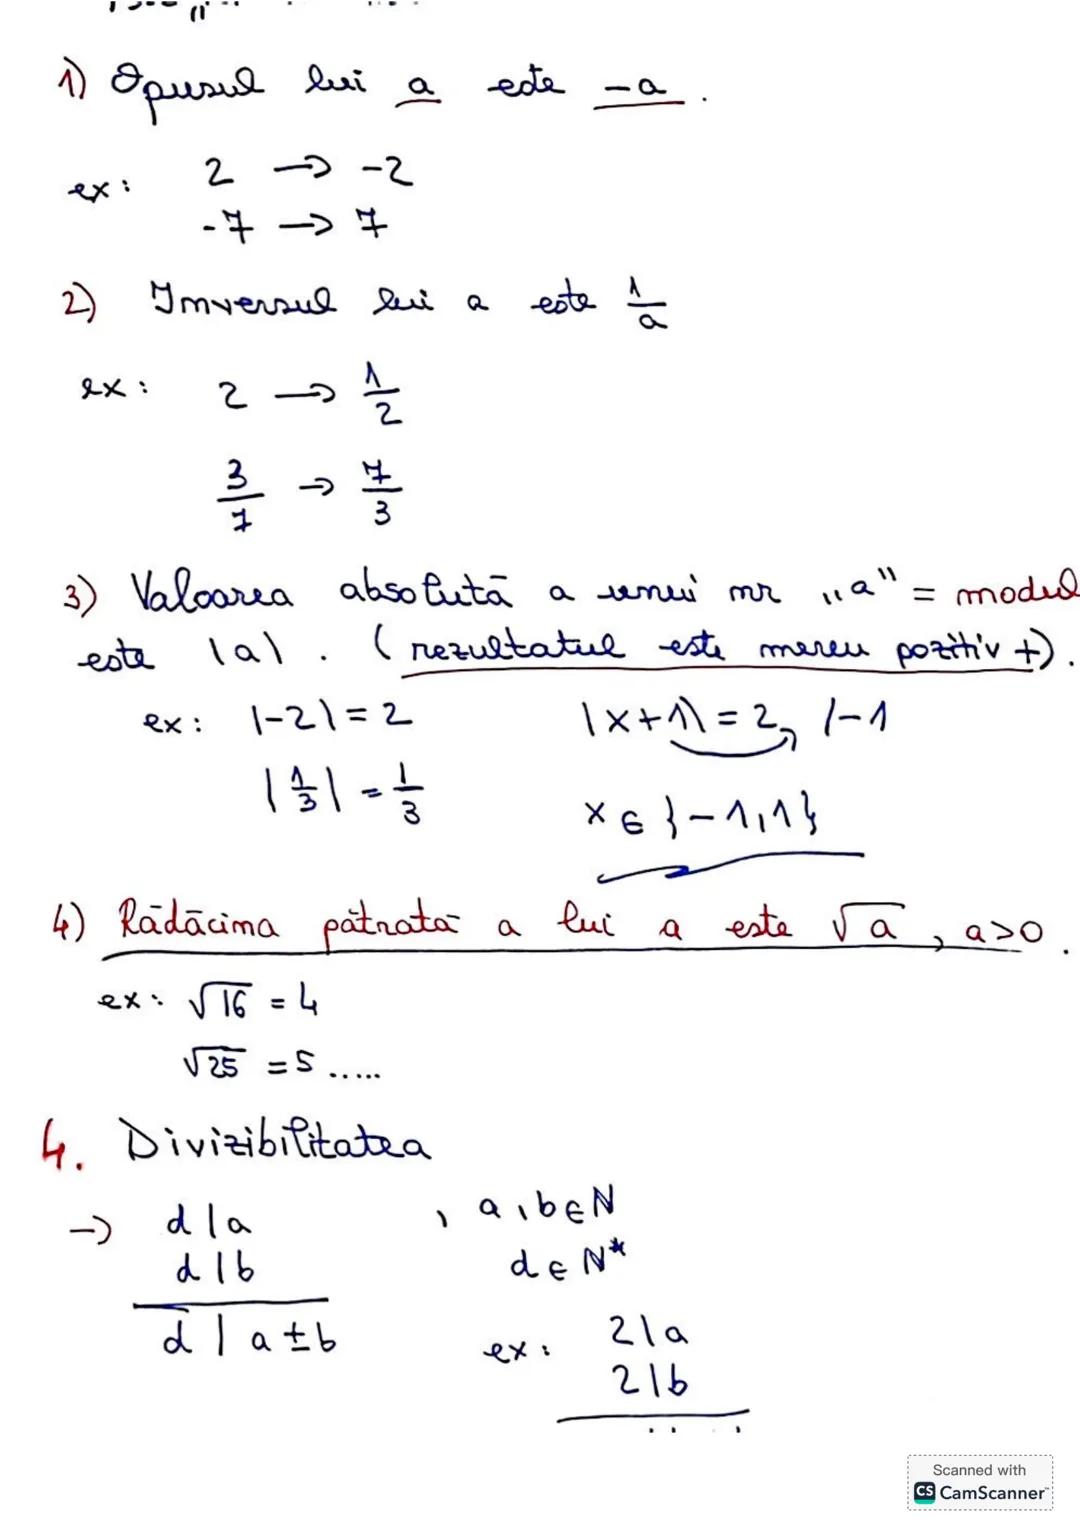 1) Opusul lui a este -a.
ex: 2 → -2
-7 → 7
2) Inversul lui a este 1/a
ex: 2 → 1/2
3/7 → 7/3
3) Valoarea absolută a unui nr „a" = modul
este |a|. (rezultatul este mereu pozitiv +).
ex: |-2| = 2 |x+1| = 2 /-1
|1/3| = 1/3
x ∈ }-1,1}
4) Rădăcina pătrată a lui a este √a, a>0.
ex: √16 = 4
√25 = 5 .....
4. Divizibilitatea
→ d|a , a,b∈N
d|b d∈N*
d | a±b
ex: 2|a
2|b
Scanned with
CS CamScanner